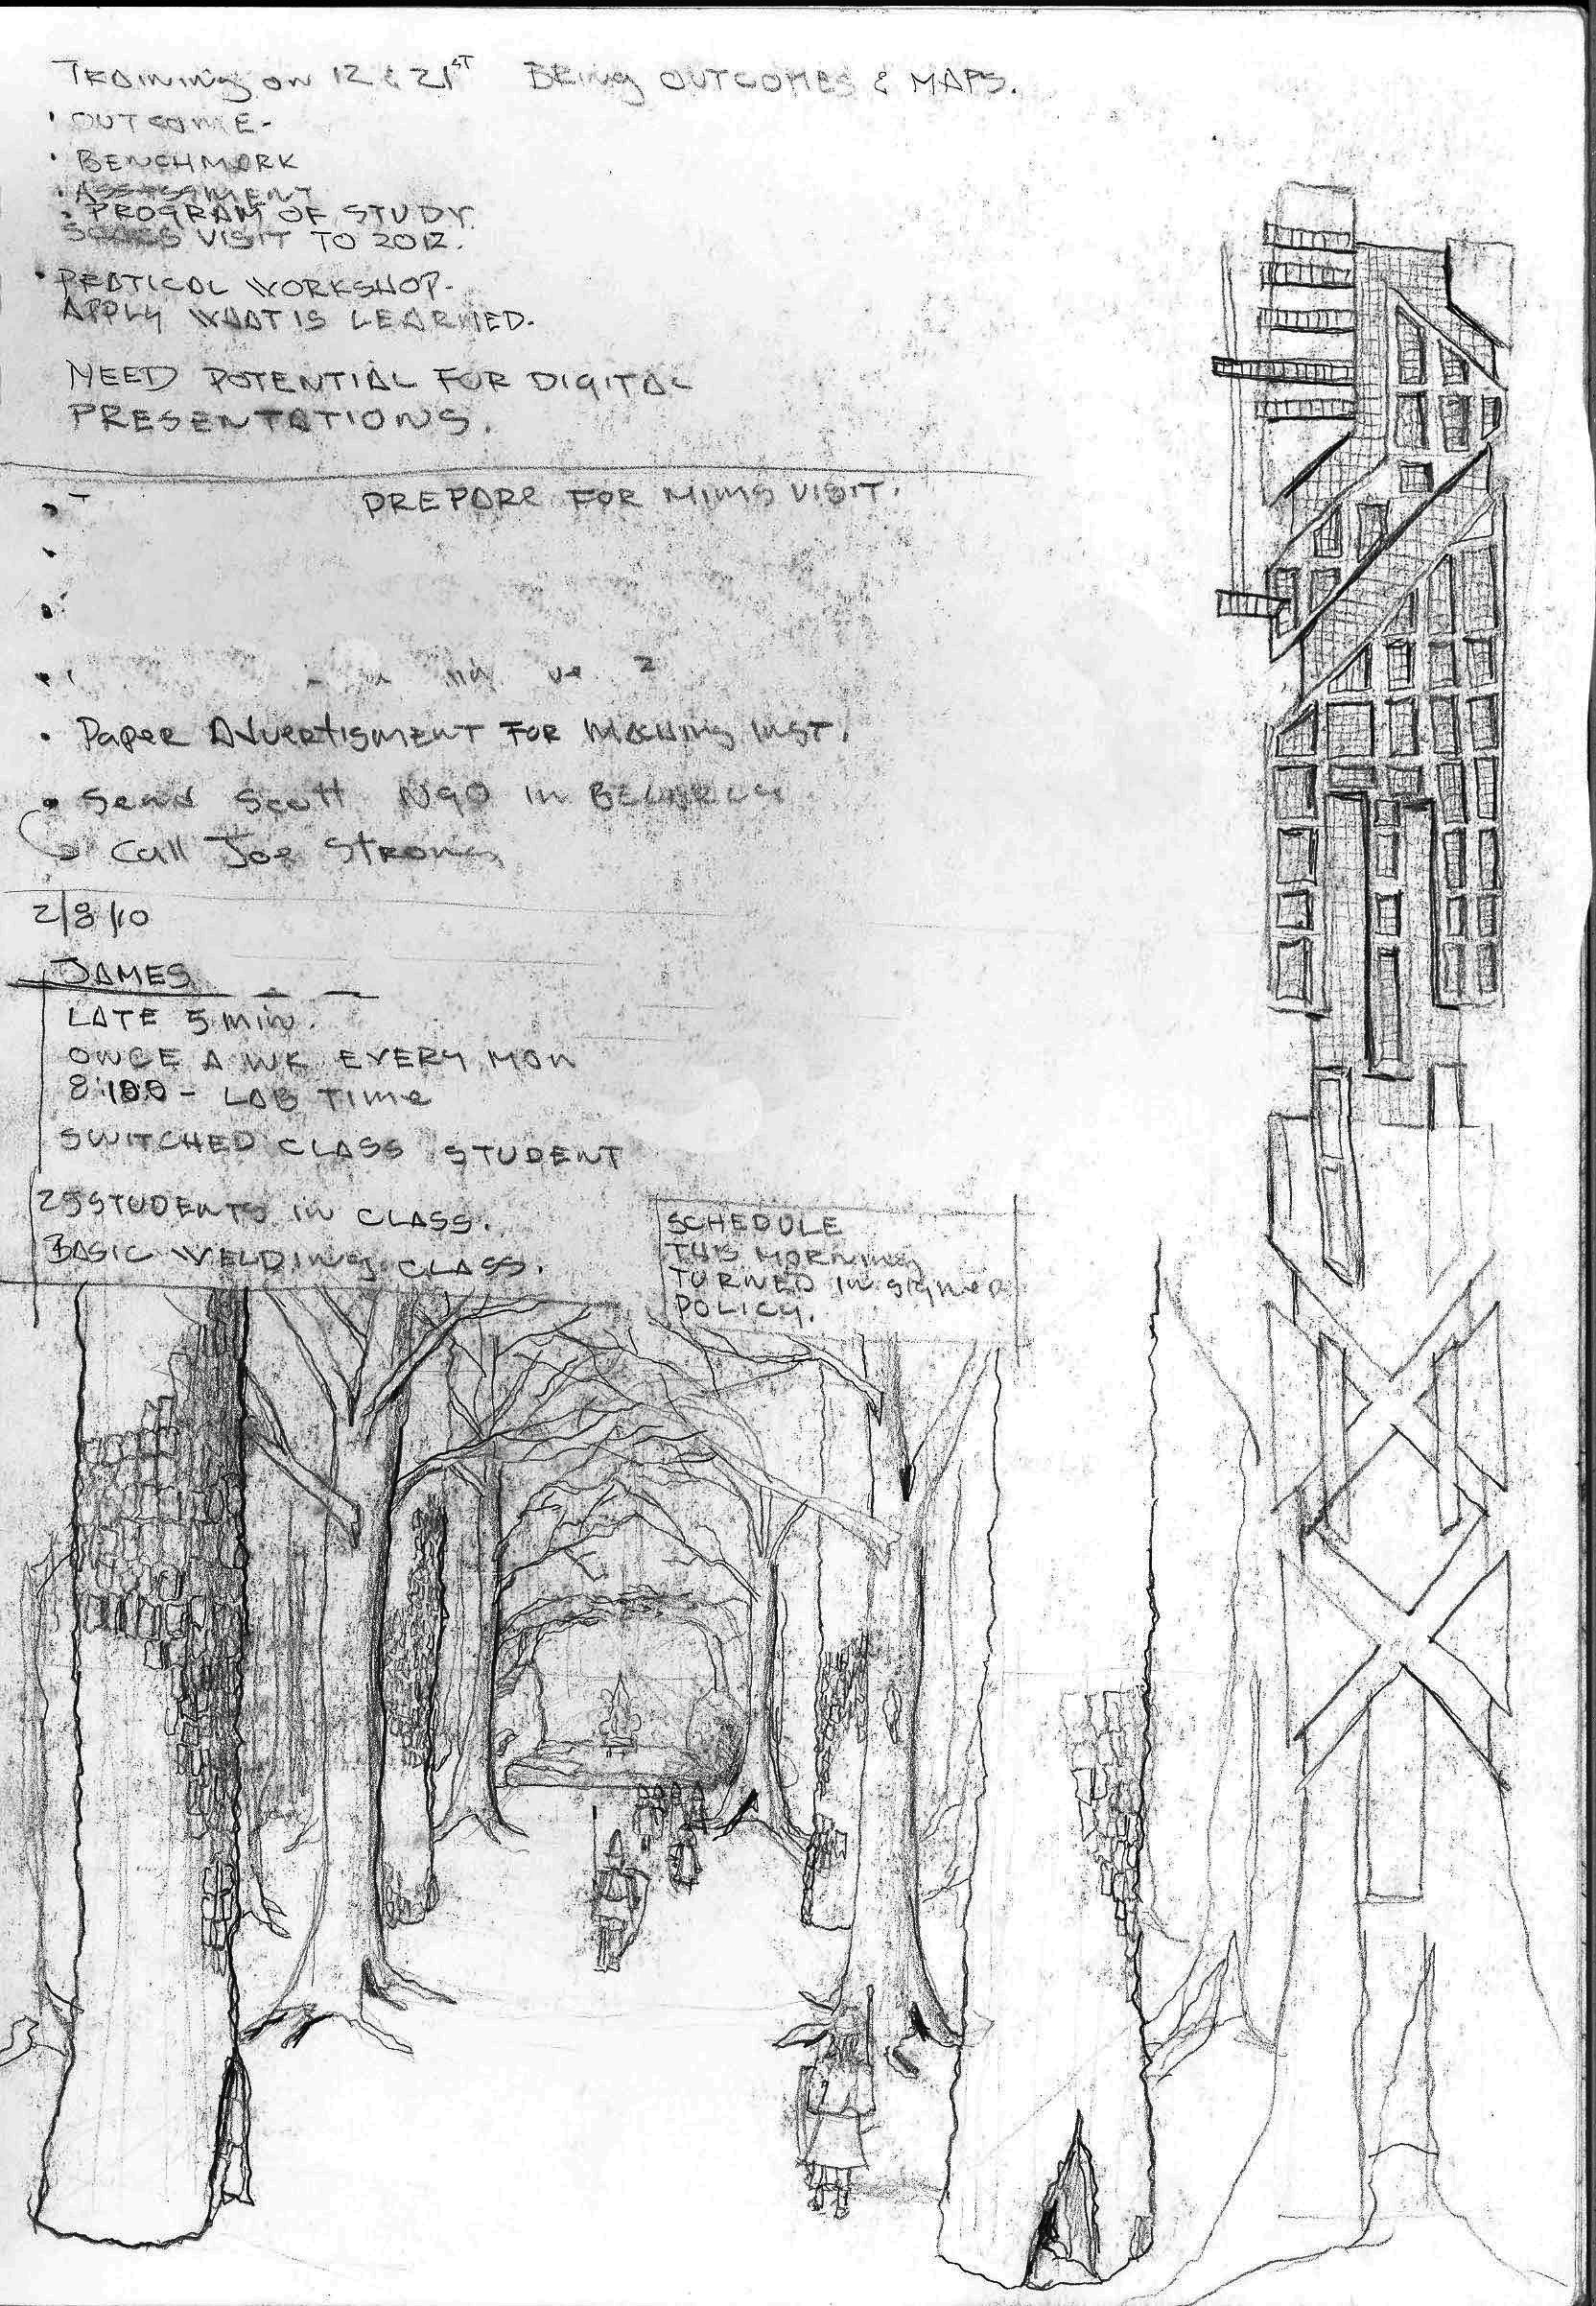 TRAINING ON 12 & 21ST BRING OUTCOMES & MAPS.
• OUTCOME-
• BENCHMORK
• ASSESSMENT
• PROGRAM OF STUDY
VISIT TO 2012.
• PRATICAL WORKSHOP-
APPLY WHAT IS LEARNED.
NEED POTENTIAL FOR DIGITAL
PRESENTATIONS.
PREPARE FOR MIMS VISIT.
• Paper Advertisment FOR INST.
• Send Scott NGO in
Call Joe Strong
2/8/10
JAMES
LATE 5 min.
ONCE A WK EVERY MON
8:00 - LAB TIME
SWITCHED CLASS STUDENT
25 STUDENTS IN CLASS.
BASIC WELDING CLASS.
SCHEDULE
THIS MORNING
TURNED IN SIGNED
POLICY.